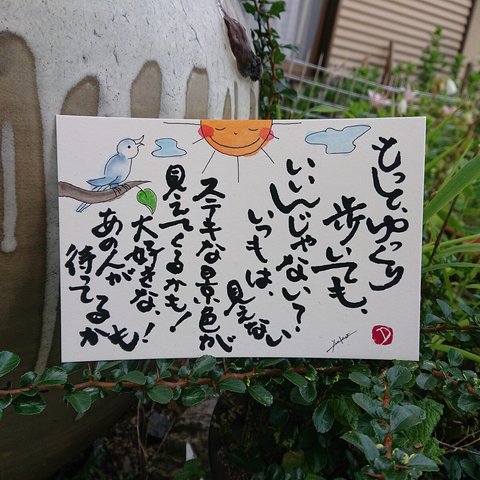 もっと、ゆっくり
歩いても、
いいんじゃない？
いつもは、見えない
ステキな景色が
見えてくるかも！
大好きな、
あの人が
待てるかも！